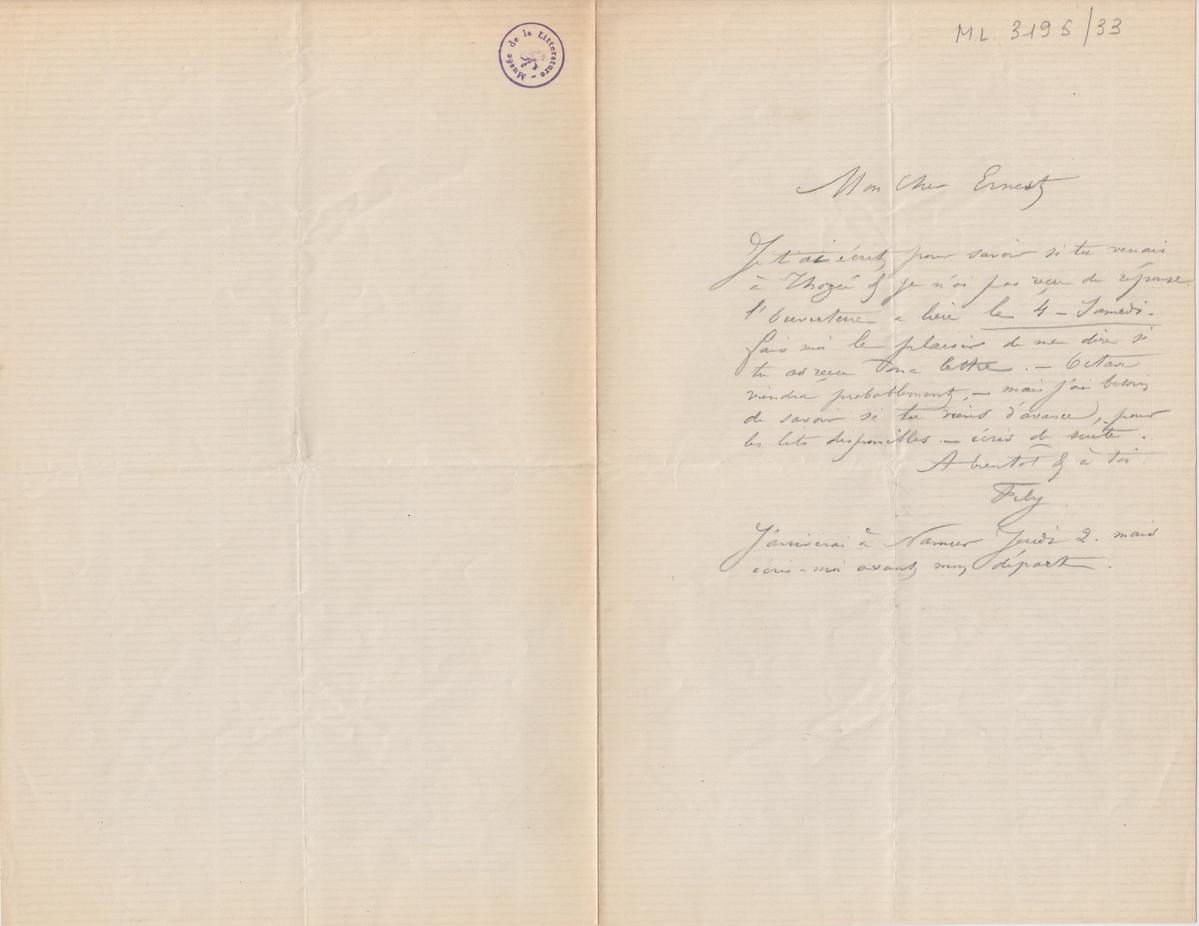 Musée de la Litterature -
ML 3195/33
Mon Cher Ernest
Je t'ai écrit pour savoir si tu venais
à Thozée & je n'ai pas reçu de réponse
l'Ouverture a lieu le 4 - Samedi -
fais moi le plaisir de me dire si
tu as reçu ma lettre. - Octave
viendra probablement, - mais j'ai besoin
de savoir si tu viens d'avance, pour
les lits disponibles. - écris de suite.
A bientot & à toi
Fély
J'arriverai à Namur Jeudi 2. mais
écris-moi avant mon départ.